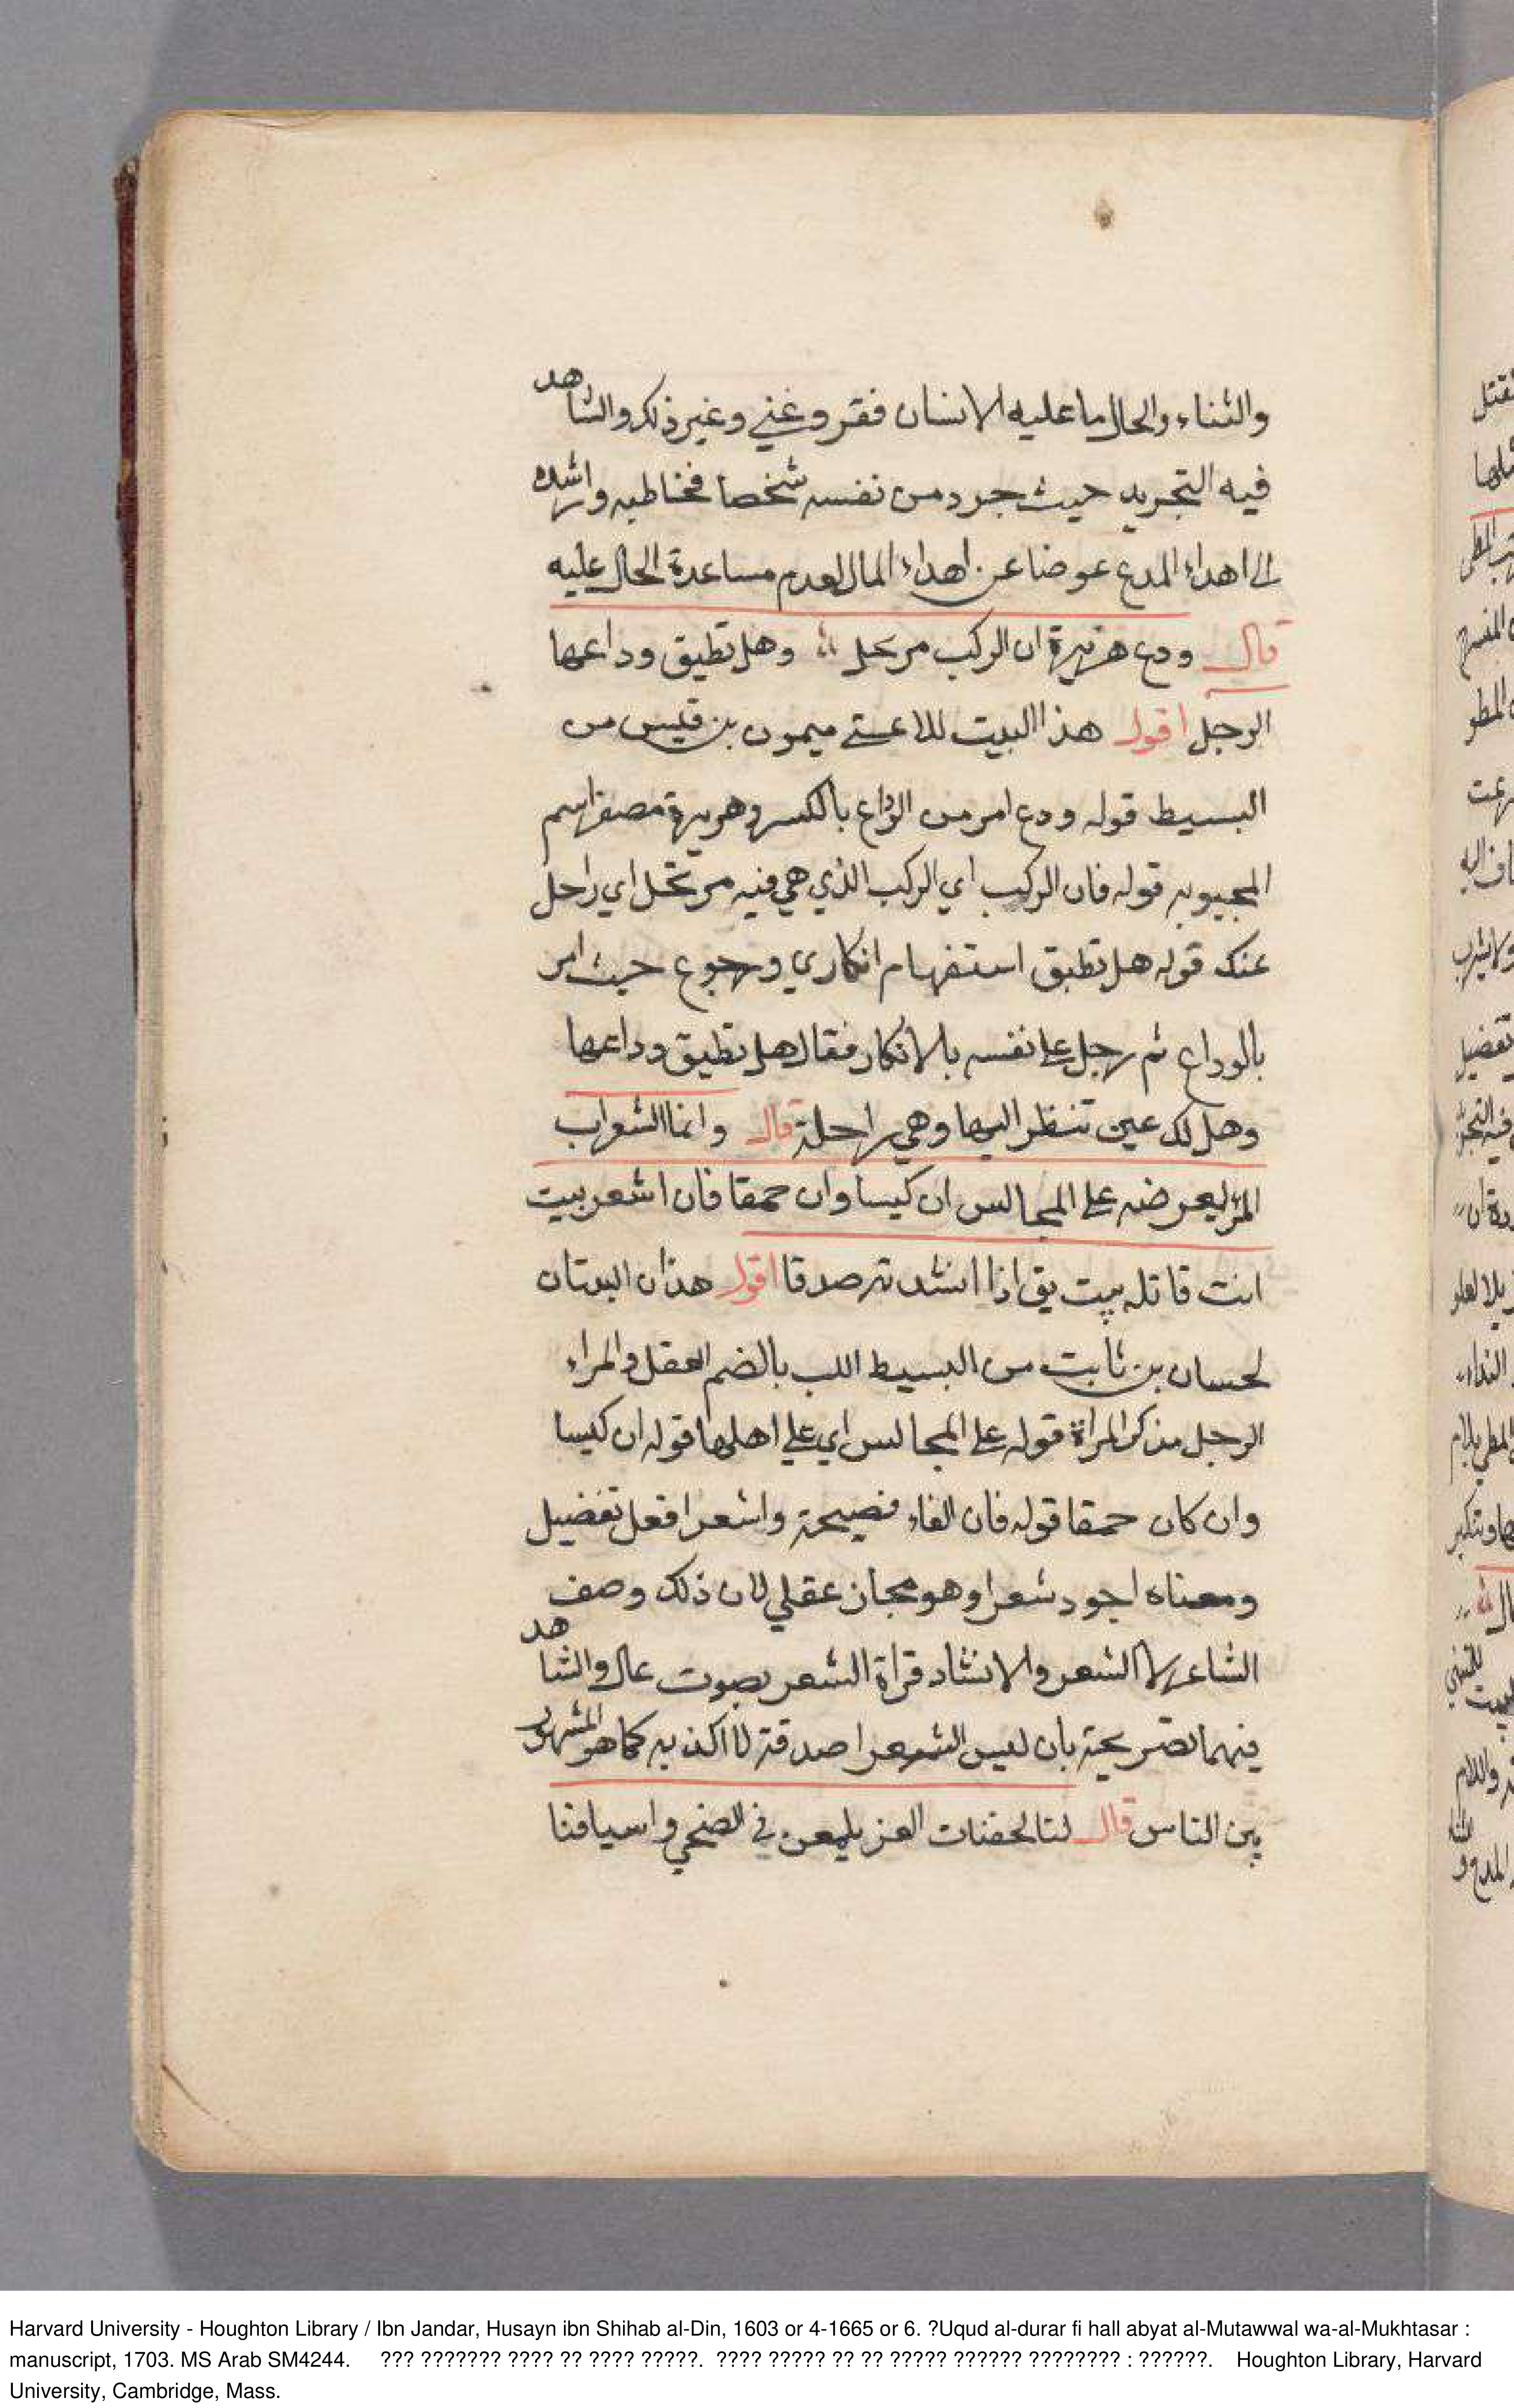 والثناء والحال ما عليه الانسان فقر وغني وغير ذلك والشاهد
فيه التجريد حيث جرد من نفسه شخصا فخاطبه وارشده
الى اهداء المدح عوضا عن اهداء المال لعدم مساعدة الحال عليه
قال ودع هريرة ان الركب مرتحل وهل تطيق وداعها
الرجل اقول هذا البيت للاعشى ميمون بن قيس من
البسيط قوله ودع امر من الوداع بالكسر وهريرة مصغر اسم
المحبوبه قوله فان الركب اي الركب الذي هي فيه مرتحل اي راحل
عنك قوله هل تطيق استفهام انكاري ورجوع حيث امر
بالوداع ثم رجل على نفسه بالانكار فقال هل تطيق وداعها
وهل لك عين تنظر اليها وهي راحلة قال وانما الشعر لب
المرء ليعرضه على المجالس ان كيسا وان حمقا فان اشعر بيت
انت قائله بيت يق اذا انشدته صدقا اقول هذان البيتان
لحسان بن ثابت من البسيط اللب بالضم العقل والمراء
الرجل مذكر المراة قوله على المجالس اي على اهلها قوله ان كيسا
وان كان حمقا قوله فان الفاء فصيحة واشعر افعل تفضيل
ومعناه اجود شعرا وهو مجاز عقلي لان ذلك وصف
الشاعر لا الشعر والانشاد قراة الشعر بصوت عال والشاهد
فيهما تصريحه بان ليس الشعر اصدقه لا اكذبه كما هو المشهور
بين الناس قال لنا الجفنات الغر يلمعن في الضحي واسيافنا
Harvard University - Houghton Library / Ibn Jandar, Husayn ibn Shihab al-Din, 1603 or 4-1665 or 6. ?Uqud al-durar fi hall abyat al-Mutawwal wa-al-Mukhtasar :
manuscript, 1703. MS Arab SM4244. ??? ??????? ???? ?? ???? ?????. ???? ????? ?? ?? ????? ?????? ???????? : ??????. Houghton Library, Harvard
University, Cambridge, Mass.